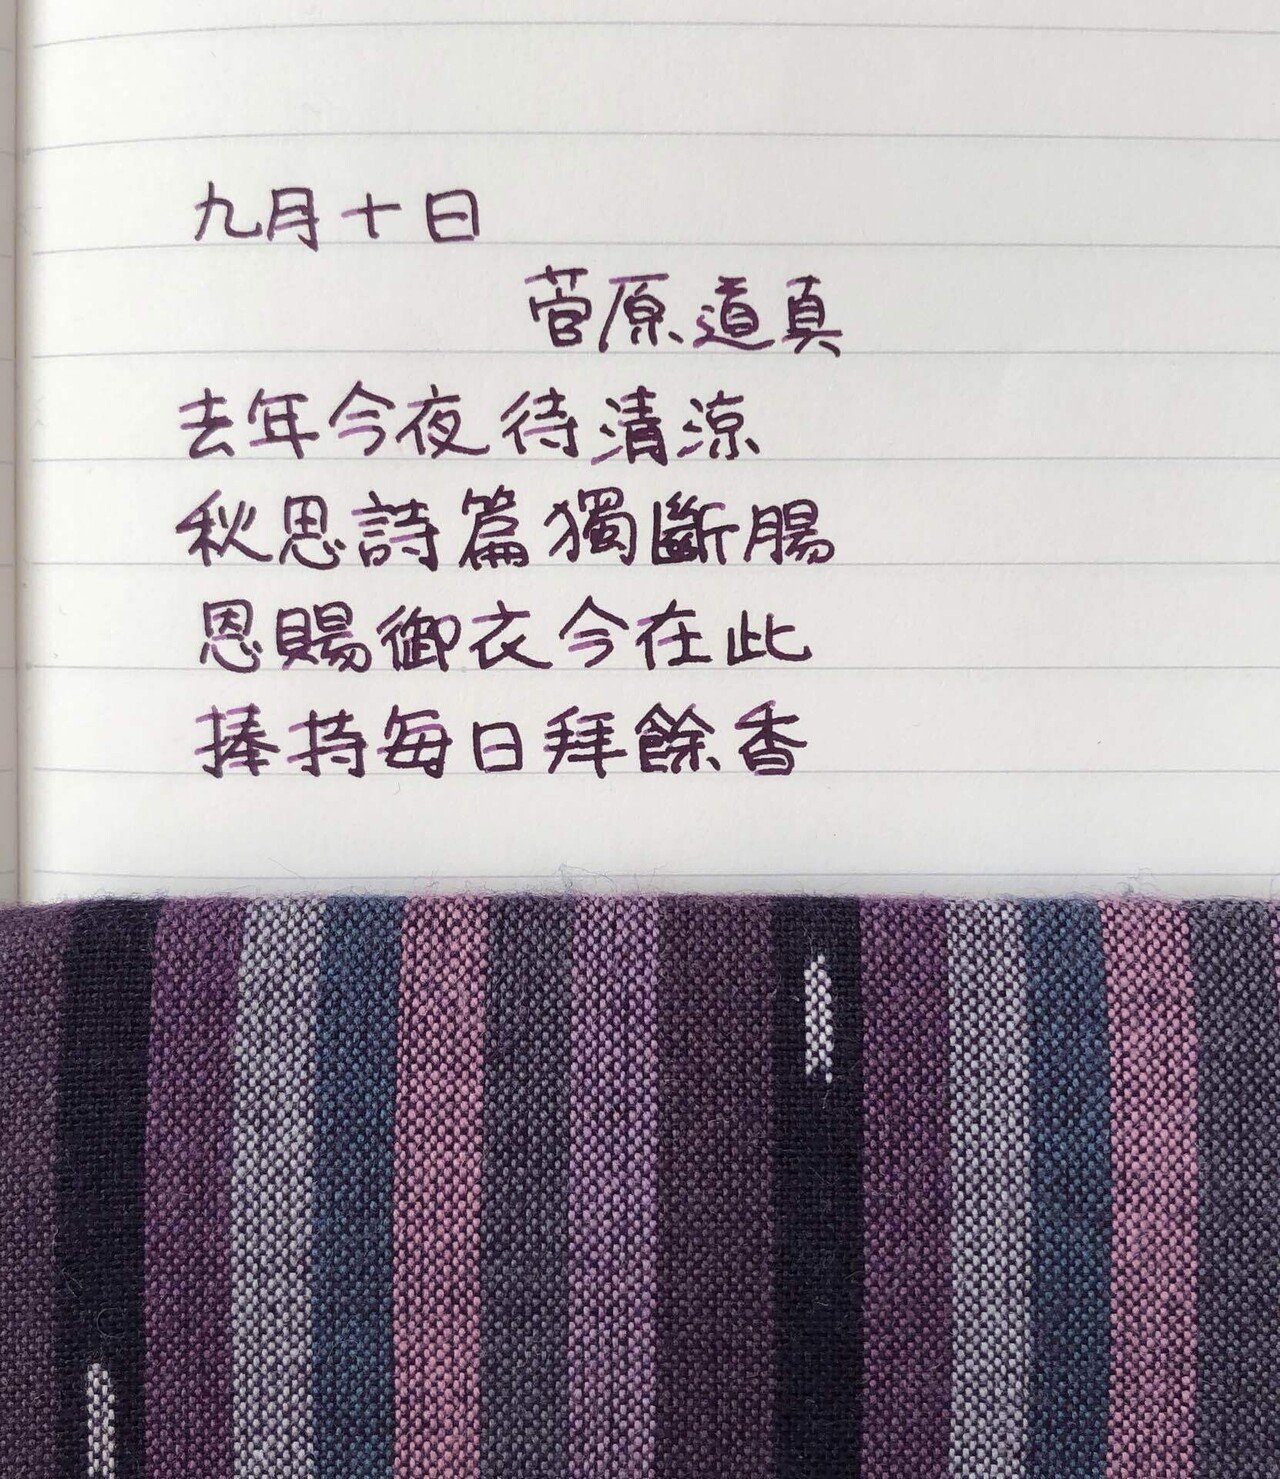 九月十日
菅原道真
去年今夜待清涼
秋思詩篇獨斷腸
恩賜御衣今在此
捧持每日拜餘香